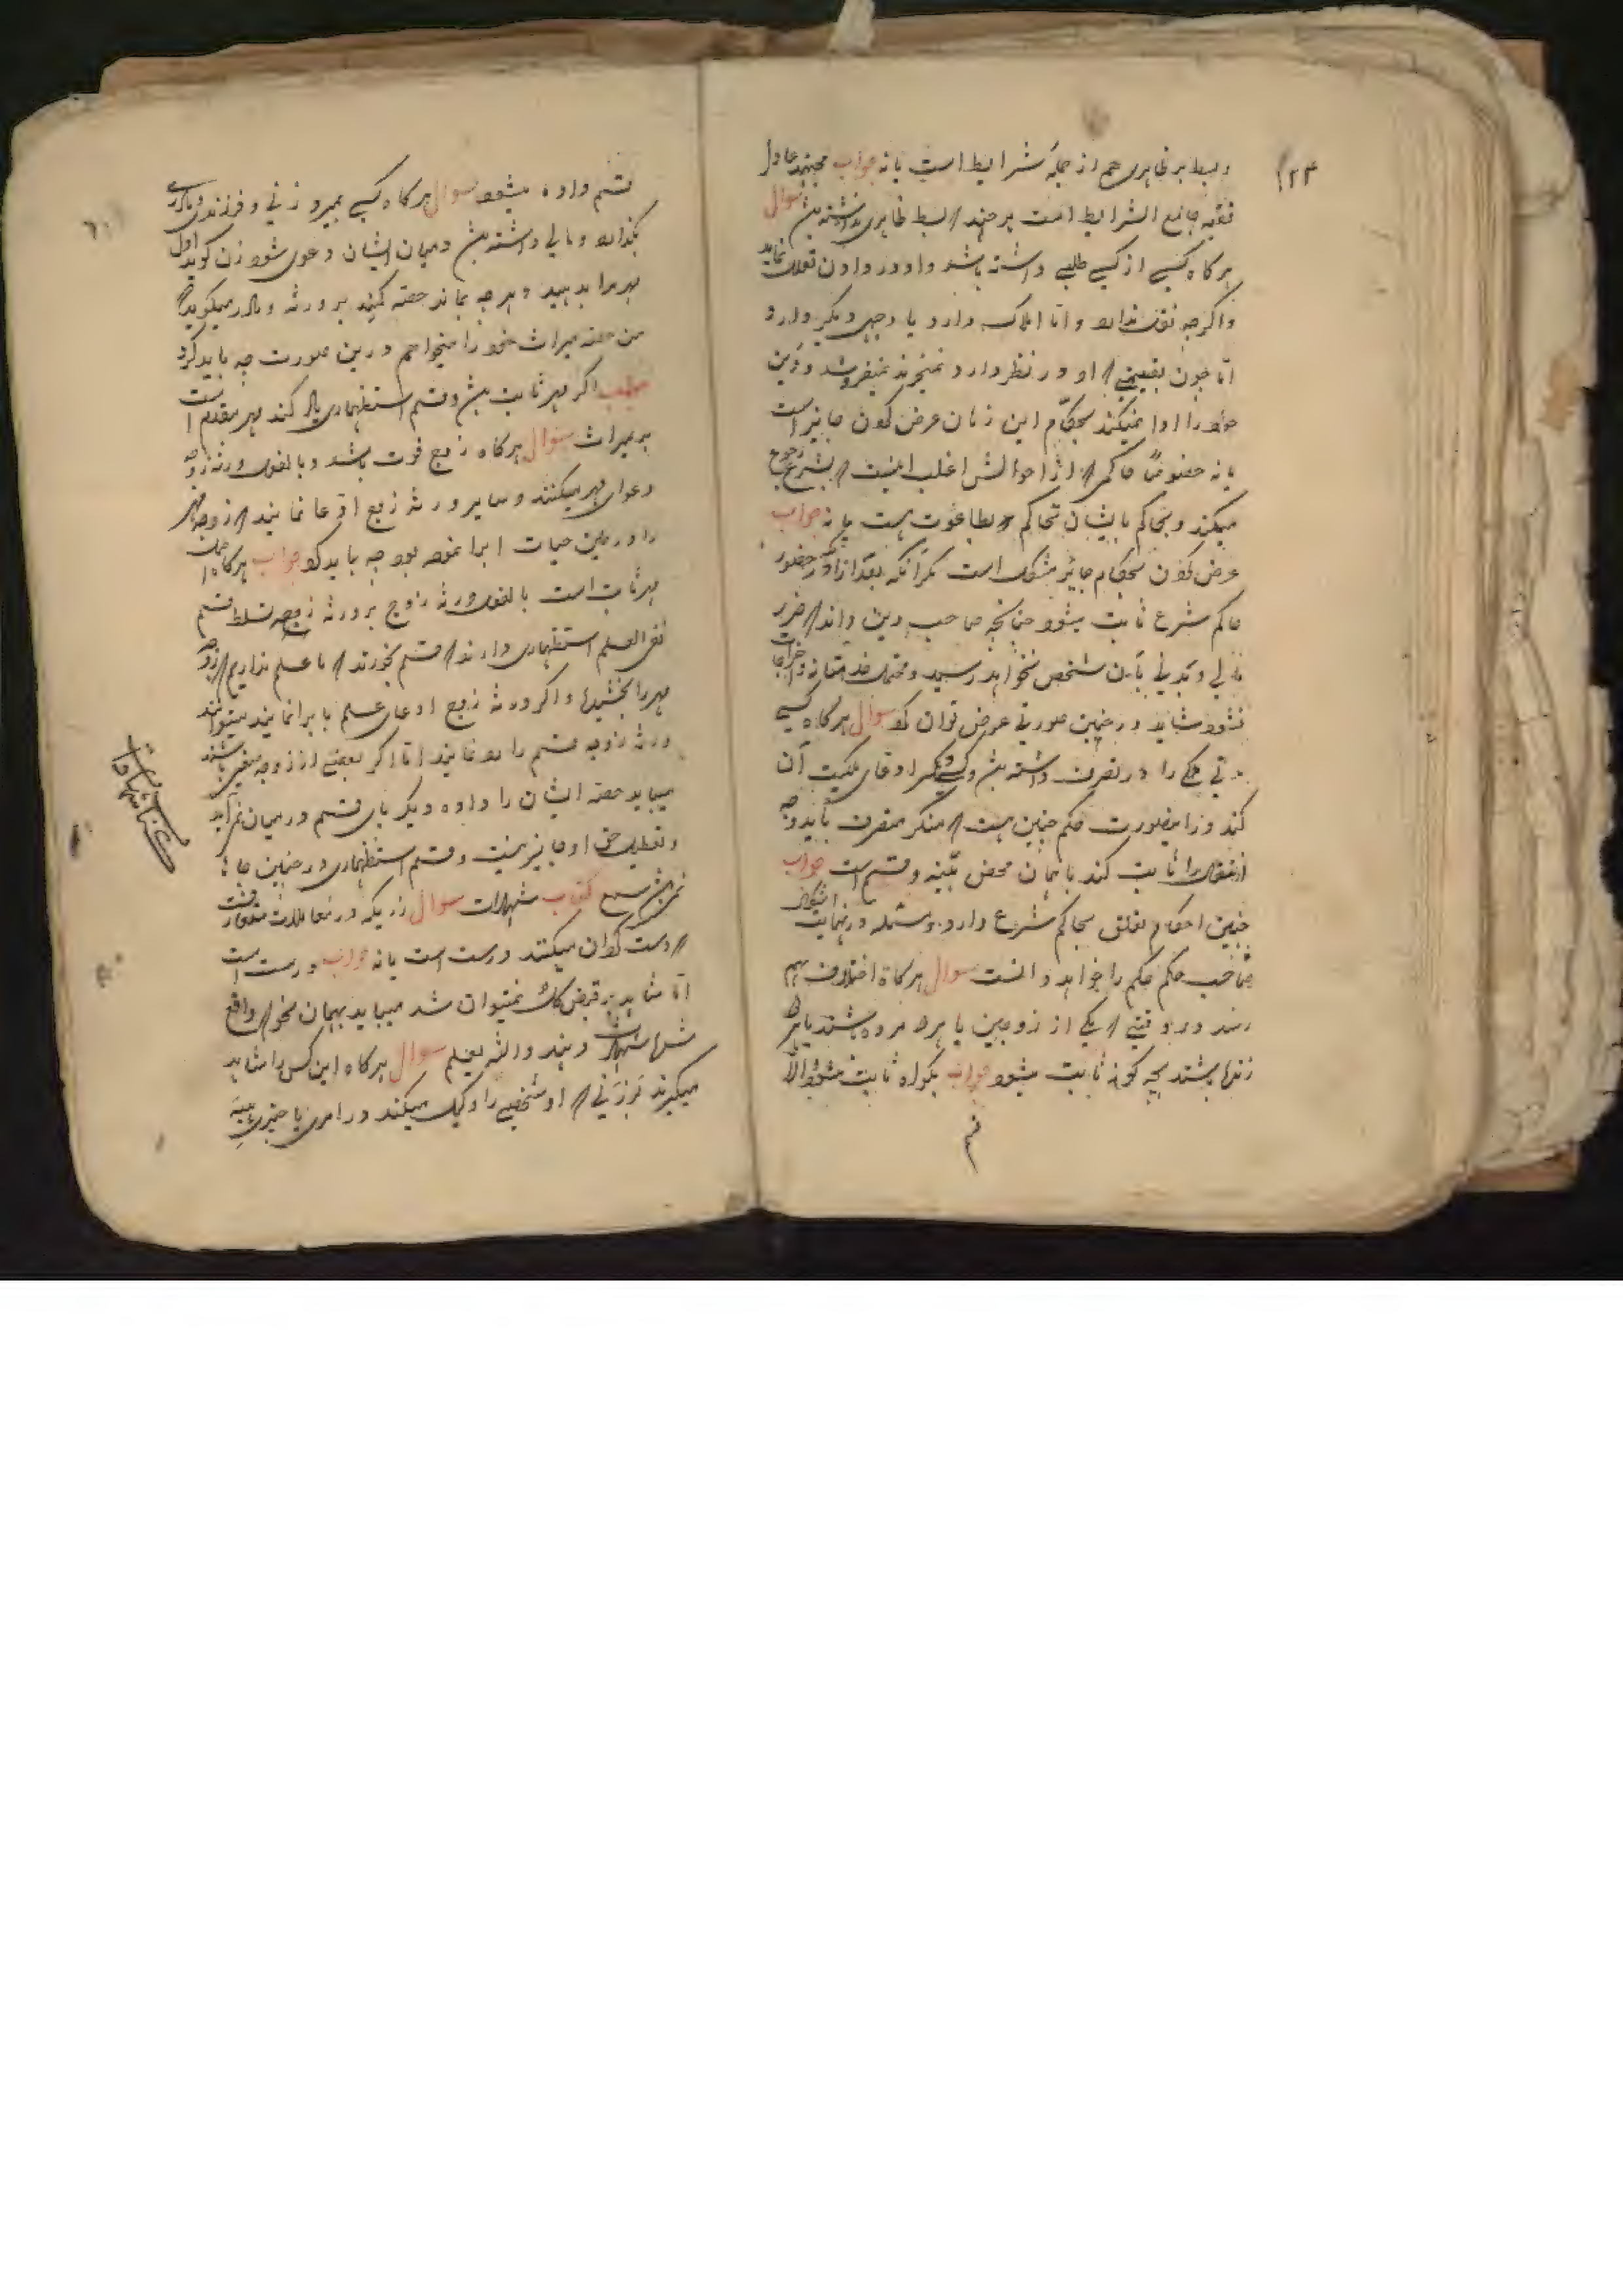 ۱۲۴
و بسط ید ظاهری هم از جمله شرایط است یا نه جواب مجتهد عادل
فقیه جامع الشرایط است هر چند که بسط ظاهری نداشته باشد سوال
هر کاه کسی از کسی طلبی داشته باشد و او در دادن تعلل نماید
و اکرچه نقد ندارد و اما املاک دارد یا وجهی دیکر دارد
اما چون بقیمتی که او در نظر دارد نمیخرند نمیفروشد و دین
خود را ادا نمیکند بحکام این زمان عرض کردن جایز است
یا نه خصوصا حاکمی که از احوالش اغلب اینست که بشرع رجوع
میکند و تحاکم بایشان تحاکم بطاغوت هست یا نه جواب
عرض کردن بحکام جایر مشکل است مکر آنکه بعد از آنکه در حضور
حاکم شرع ثابت میشود چنانچه صاحب دین داند که ضرر
مالی و بدنی بآن شخص نخواهد رسید و محتمل خدمتانه و اخراجات
نشود شاید در چنین صورتی عرض توان کرد سوال هر کاه کسی
مدتی ملکی را در تصرف داشته باشد و کسی دیکر ادعای ملکیت آن
کند در اینصورت حکم چنین است که منکر متصرف باید وجه
انتقال را ثابت کند یا همان محض بینه و قسم است جواب
چنین احکام تعلق بحاکم شرع دارد و مسئله در نهایت اشکال
صاحب حکم حکم را خواهد دانست سوال هر کاه اختلاف بهم
رسد در وقتی که یکی از زوجین یا هر دو مرده باشند یا هر دو
زنده باشند بچه کونه ثابت میشود جواب بکواه ثابت میشود و الا
قسم
قسم داده میشود سوال هر کاه کسی بمیرد و زنی و فرزندی و مادری
بکذارد و مالی داشته باشد و میان ایشان دعوی شود زن کوید اول
مهر مرا بدهید و هر چه بماند حصه کنید بر ورثه و مادر میکوید که
من حصه میراث خود را میخواهم درین صورت چه باید کرد
جواب اکر مهر ثابت باشد و قسم استظهاری یاد کند مهر مقدم است
بر میراث سوال هر کاه زوج فوت باشد و بالفعل ورثه زوجه
دعوای مهر میکنند و سایر ورثه زوج ادعا نمایند که زوجه مهر
را در حین حیات ابرا نموده بود چه باید کرد جواب هر کاه اصل
مهر ثابت است بالفعل ورثه زوج بر ورثه زوجه تسلط قسم
نفی العلم استظهاری دارند که قسم بخورند که ما علم نداریم که زوجه
مهر را بخشیده و اکر ورثه زوج ادعای علم با برا نمایند میتوانند
ورثه زوجه قسم را رد نمایند اما اکر بعضی از زوجه صغیر باشند
میباید حصه ایشان را داده دیکر پای قسم در میان نمی‌آید
و تعطیل حق او جایز نیست و قسم استظهاری در چنین جا
نمیباشد کتاب شهادات سوال زریکه در معاملات متعارفست
که دست کردان میکنند درست است یا نه جواب درست است
اما شاهد بر قبض کل نمیتوان شد میباید بهمان نحو که واقع
شده شهادت دهند و الله یعلم سوال هر کاه این کس را شاهد
میکیرند بر زنی که او شخصی را وکیل میکند در امری یا چیزی بهبه
کتاب شهادات